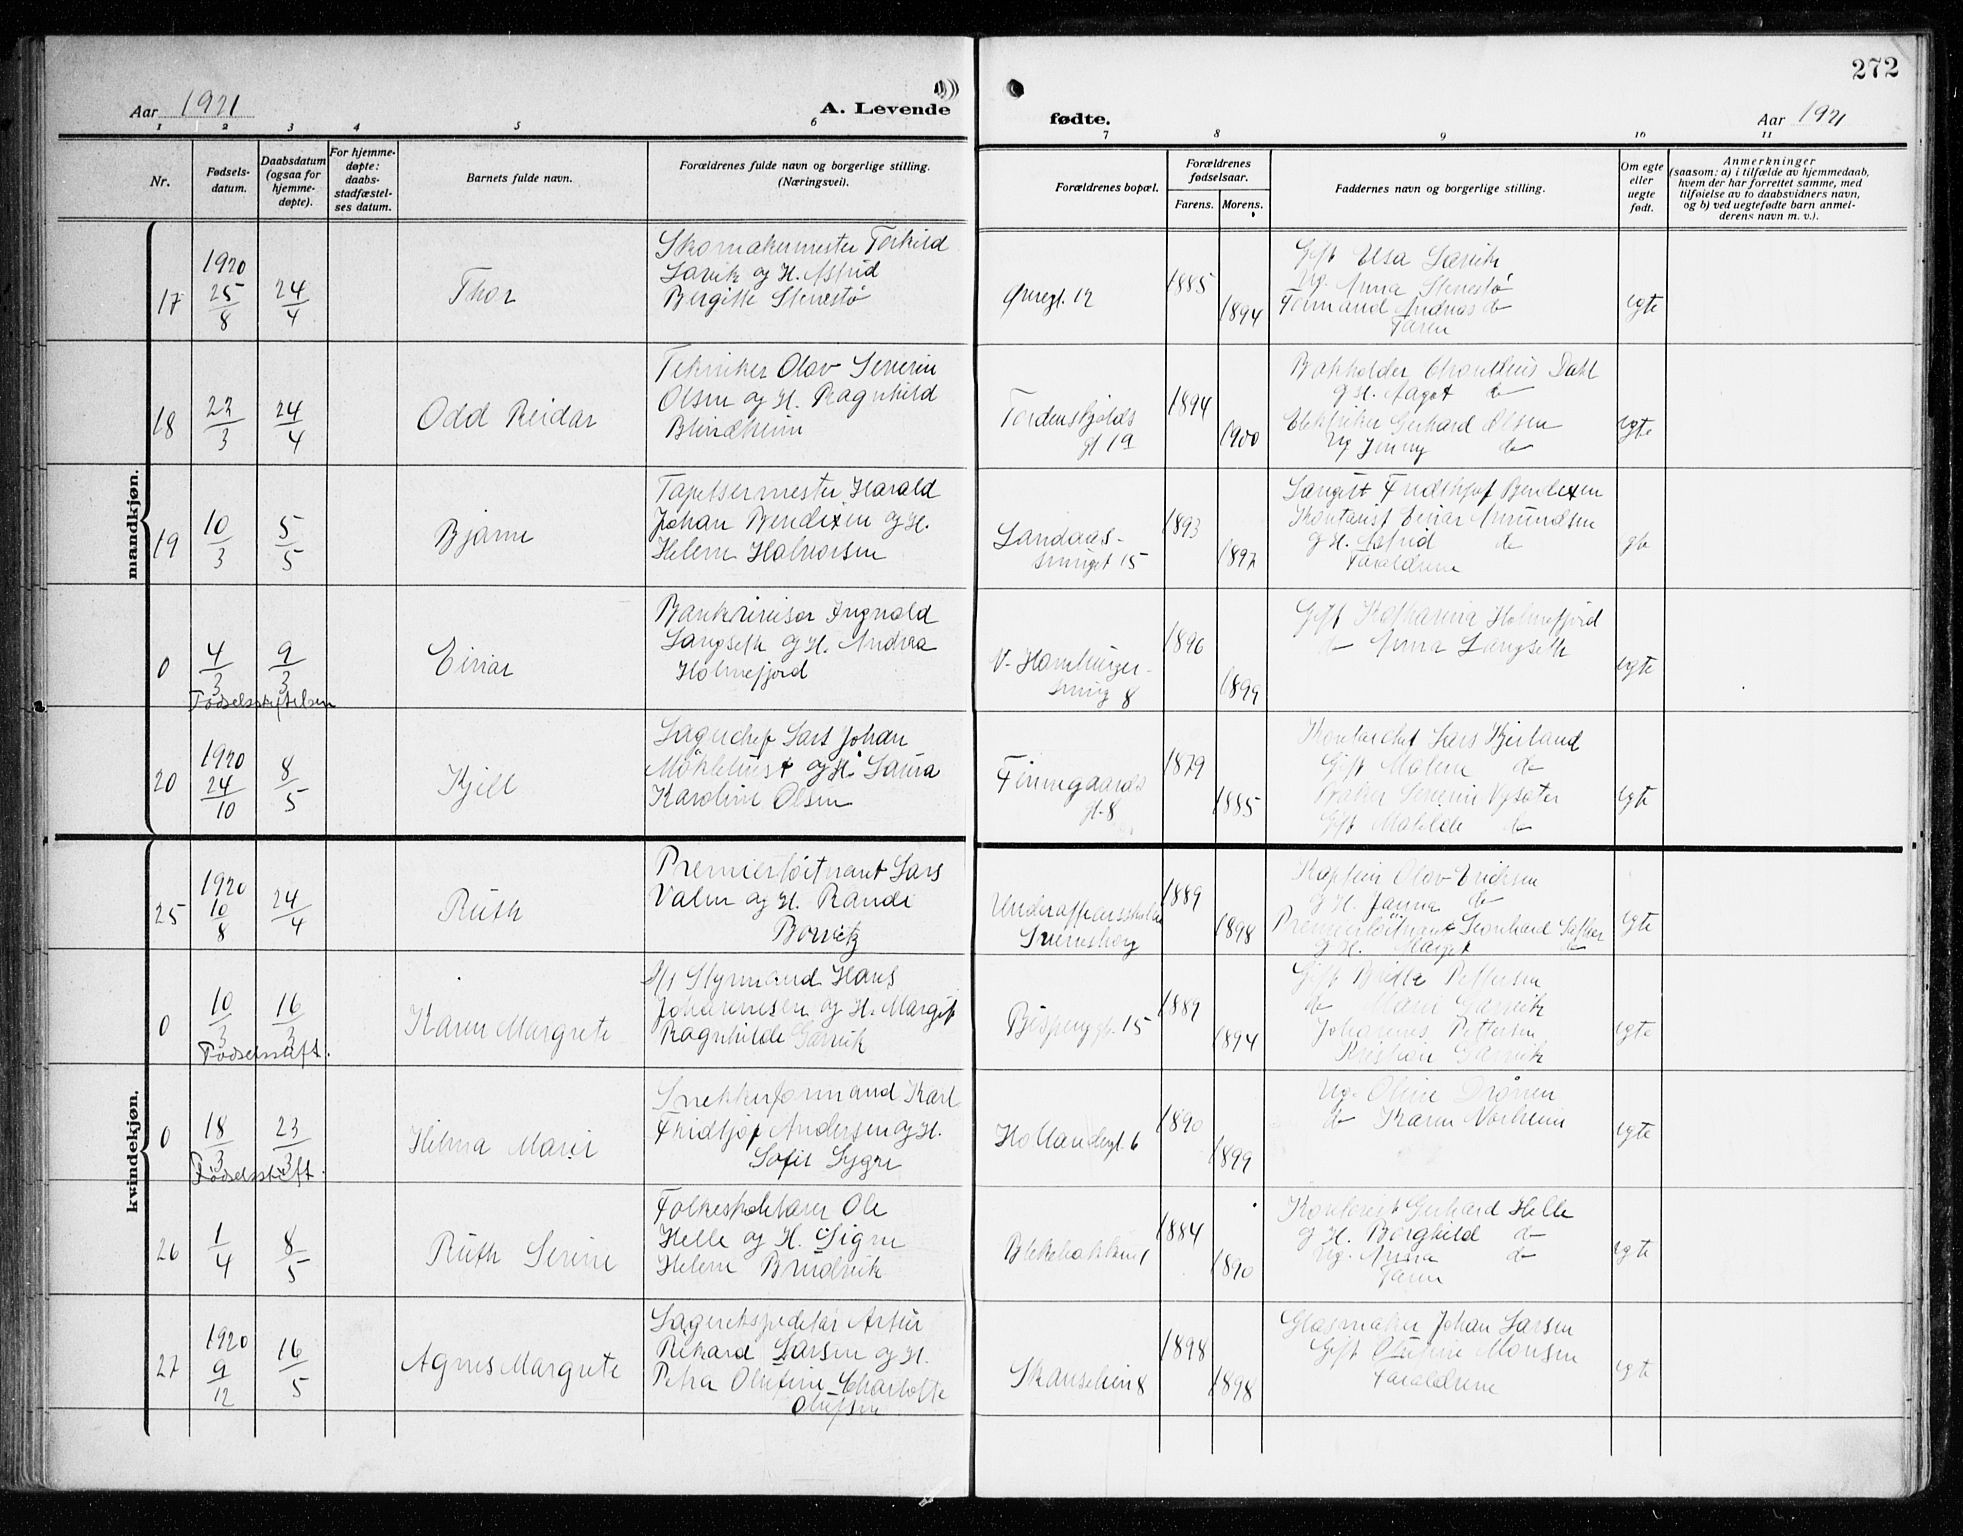 272
Aar 1921
A. Levende
fødte.
Aar 1921
1 2 3 4 5 6 7 8 9 10 11
Nr.
Fødsels-
datum.
Daabsdatum
(ogsaa for
hjemme-
døpte).
For hjemme-
døpte:
daabs-
stadfæstel-
ses datum.
Barnets fulde navn.
Forældrenes fulde navn og borgerlige stilling.
(Næringsvei).
Forældrenes bopæl.
Forældrenes
fødselsaar.
Farens. Morens.
Faddernes navn og borgerlige stilling.
Om egte
eller
uegte
født.
Anmerkninger
(saasom: a) i tilfælde av hjemmedaab,
hvem der har forrettet samme, med
tilføielse av to daabsvidners navn,
og b) ved uegtefødte barn anmel-
derens navn m. v.).
mandkjøn.
17
1920
25/8
24/4
Thor
Skomakermester Torkild
Larvik og H. Astrid
Bergitte Stenestø
Øvregt. 12
1885
1894
Gift Elsa Larvik
Ug. Anna Stenestø
Formand Andreas do
Faren
egte
18
22/3
24/4
Odd Reidar
Tekniker Olav Severin
Olsen og H. Ragnhild
Blindheim
Tordenskjolds
gt 19
1894
1900
Bokholder Dahl
og H. Aagot do
Elektriker Gerhard Olsen
Ug Jenny do
egte
19
10/3
5/5
Bjarne
Tapetsermester Harald
Johan Bendixen og H.
Helene Halvorsen
Landaas-
svinget 15
1893
1897
Fridthjof Bendixen
Kontorist Einar Amundsen
og H. Astrid do
Forældrene
egte
0
4/3
9/3
Fødselsstiftelsen
Einar
Bankrevisor Ingvald
Langseth og H. Andrea
Holmefjord
V. Hamburger-
smug 8
1896
1899
Gift Katharina Holmefjord
do Anna Langseth
egte
20
1920
24/10
8/5
Kjell
Lagerchef Lars Johan
Møklebust og H. Laura
Karoline Olsen
Finnegaards
gt. 8
1879
1885
Lars Kjerland
Gift Malene do
Baker Severin
Gift Matilde do
egte
kvindekjøn.
25
1920
10/8
24/4
Ruth
Premierløitnant Lars
Valen og H. Randi
Underofficersskolen
Sverresborg
1889
1898
Kaptein Olav Erichsen
og H. Janna do
Premierløitnant Leonhard
og H. Marget do
egte
0
10/3
16/3
Fødselsstift.
Karen Margrete
S/s Styrmand Hans
Johannesen og H. Margit
Ragnhilde Garvik
Bispeng gt. 15
1889
1894
Gift Pettersen
do Marie Garvik
Johannes Pettersen
Kristian Garvik
egte
0
18/3
23/3
Fødselsstift.
Hilma Marie
Snekkerformand Karl
Fridtjof Andersen og H.
Sofie Sygne
Hollændergt. 6
1890
1899
Ug. Oline Drønen
do Karen Norheim
egte
26
1/4
8/5
Ruth Serine
Folkeskolelærer Ole
Helle og H. Signe
Helene Brudvik
Blekebakken 1
1884
1890
Kontorist Gerhard Helle
og H. Borghild do
Ug. Anna do
Faren
egte
27
1920
9/12
16/5
Agnes Margrete
Lagerekspeditør Artur
Rikard Larsen og H.
Petra Olufine Charlotte
Olufsen
Skanselien 8
1898
1898
Glasmaker Johan Larsen
Gift Olufine Monsen
Forældrene
egte